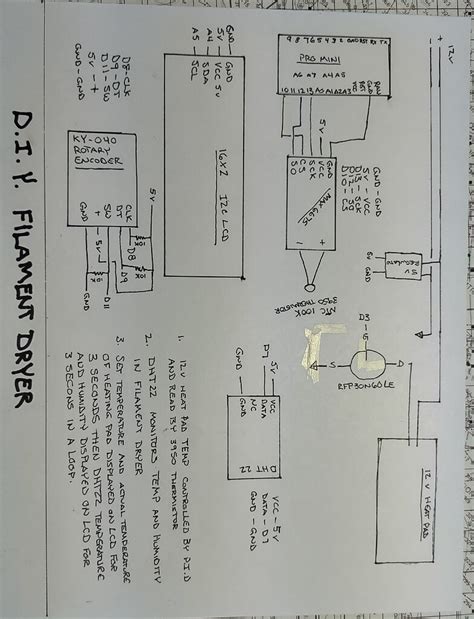 12V
9 8 7 6 5 4 3 2 GND RST RX TX
PRO MINI
A6 A7 A4 A5
10 11 12 13 A0 A1 A2 A3 VCC RST GND RAW
GND
VCC
SCK
CS
SO
MAX 6675
-
+
GND - GND
5V - VCC
NTC 100K
3950 THERMISTOR
5V
REGULATOR
5V
GND
D3
G
S
D
RFP30N06LE
12V HEAT PAD
GND - GND
5V - VCC
A4 - SDA
A5 - SCL
16X2 I2C LCD
D8-CLK
D9-DT
D11-SW
5V - +
GND-GND
KY-040
ROTARY
ENCODER
CLK
DT
SW
+
5V
D8
D9
D11
5V
GND
5V
D7
GND
VCC
DATA
NC
GND
DHT 22
VCC - 5V
DATA - D7
GND - GND
1. 12V HEAT PAD TEMP CONTROLLED BY P.I.D
AND READ BY 3950 THERMISTOR
2. DHT22 MONITORS TEMP AND HUMIDITY
IN FILAMENT DRYER
3. SET TEMPERATURE AND ACTUAL TEMPERATURE
OF HEATING PAD DISPLAYED ON LCD FOR
3 SECONDS THEN DHT22 TEMPERATURE
AND HUMIDITY DISPLAYED ON LCD FOR
3 SECONS IN A LOOP.
D.I.Y. FILAMENT DRYER